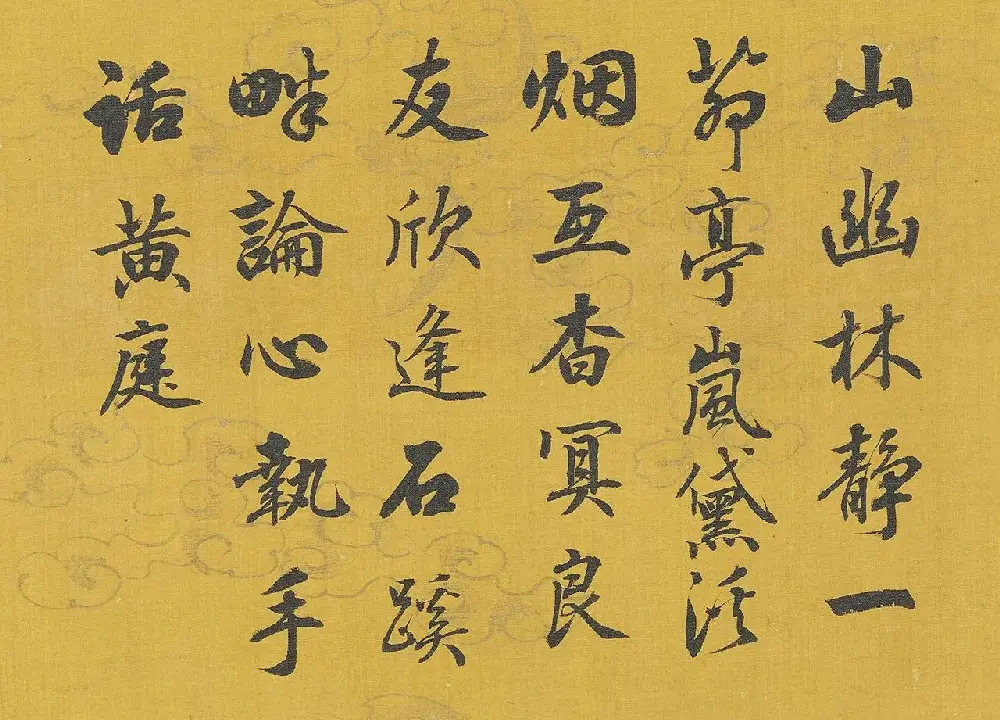 山幽林靜一
茆亭嵐黛溪
烟互杳冥良
友欣逢石蹊
畔論心執手
話黃庭